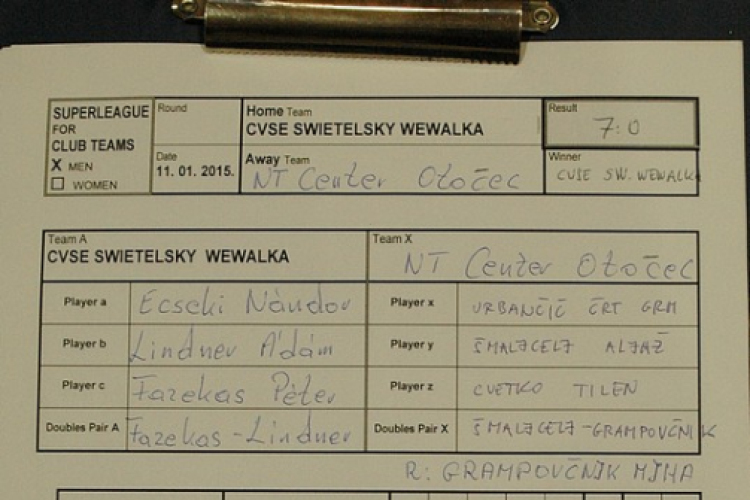 SUPERLEAGUE
FOR
CLUB TEAMS
X MEN
☐ WOMEN
Round
Date
11. 01. 2015.
Home Team
CVSE SWIETELSKY WEWALKA
Away Team
NT Center Otočec
Result
7:0
Winner
CVSE SW. WEWALKA
Team A
CVSE SWIETELSKY WEWALKA
Team X
NT Center Otočec
Player a Ecseki Nándor
Player x URBANČIČ ČRT GRM
Player b Lindner Ádám
Player y ŠMALJCELJ ALJAŽ
Player c Fazekas Péter
Player z CVETKO TILEN
Doubles Pair A Fazekas - Lindner
Doubles Pair X ŠMALJCELJ - GRAMPOVČNIK
R: GRAMPOVČNIK MIHA